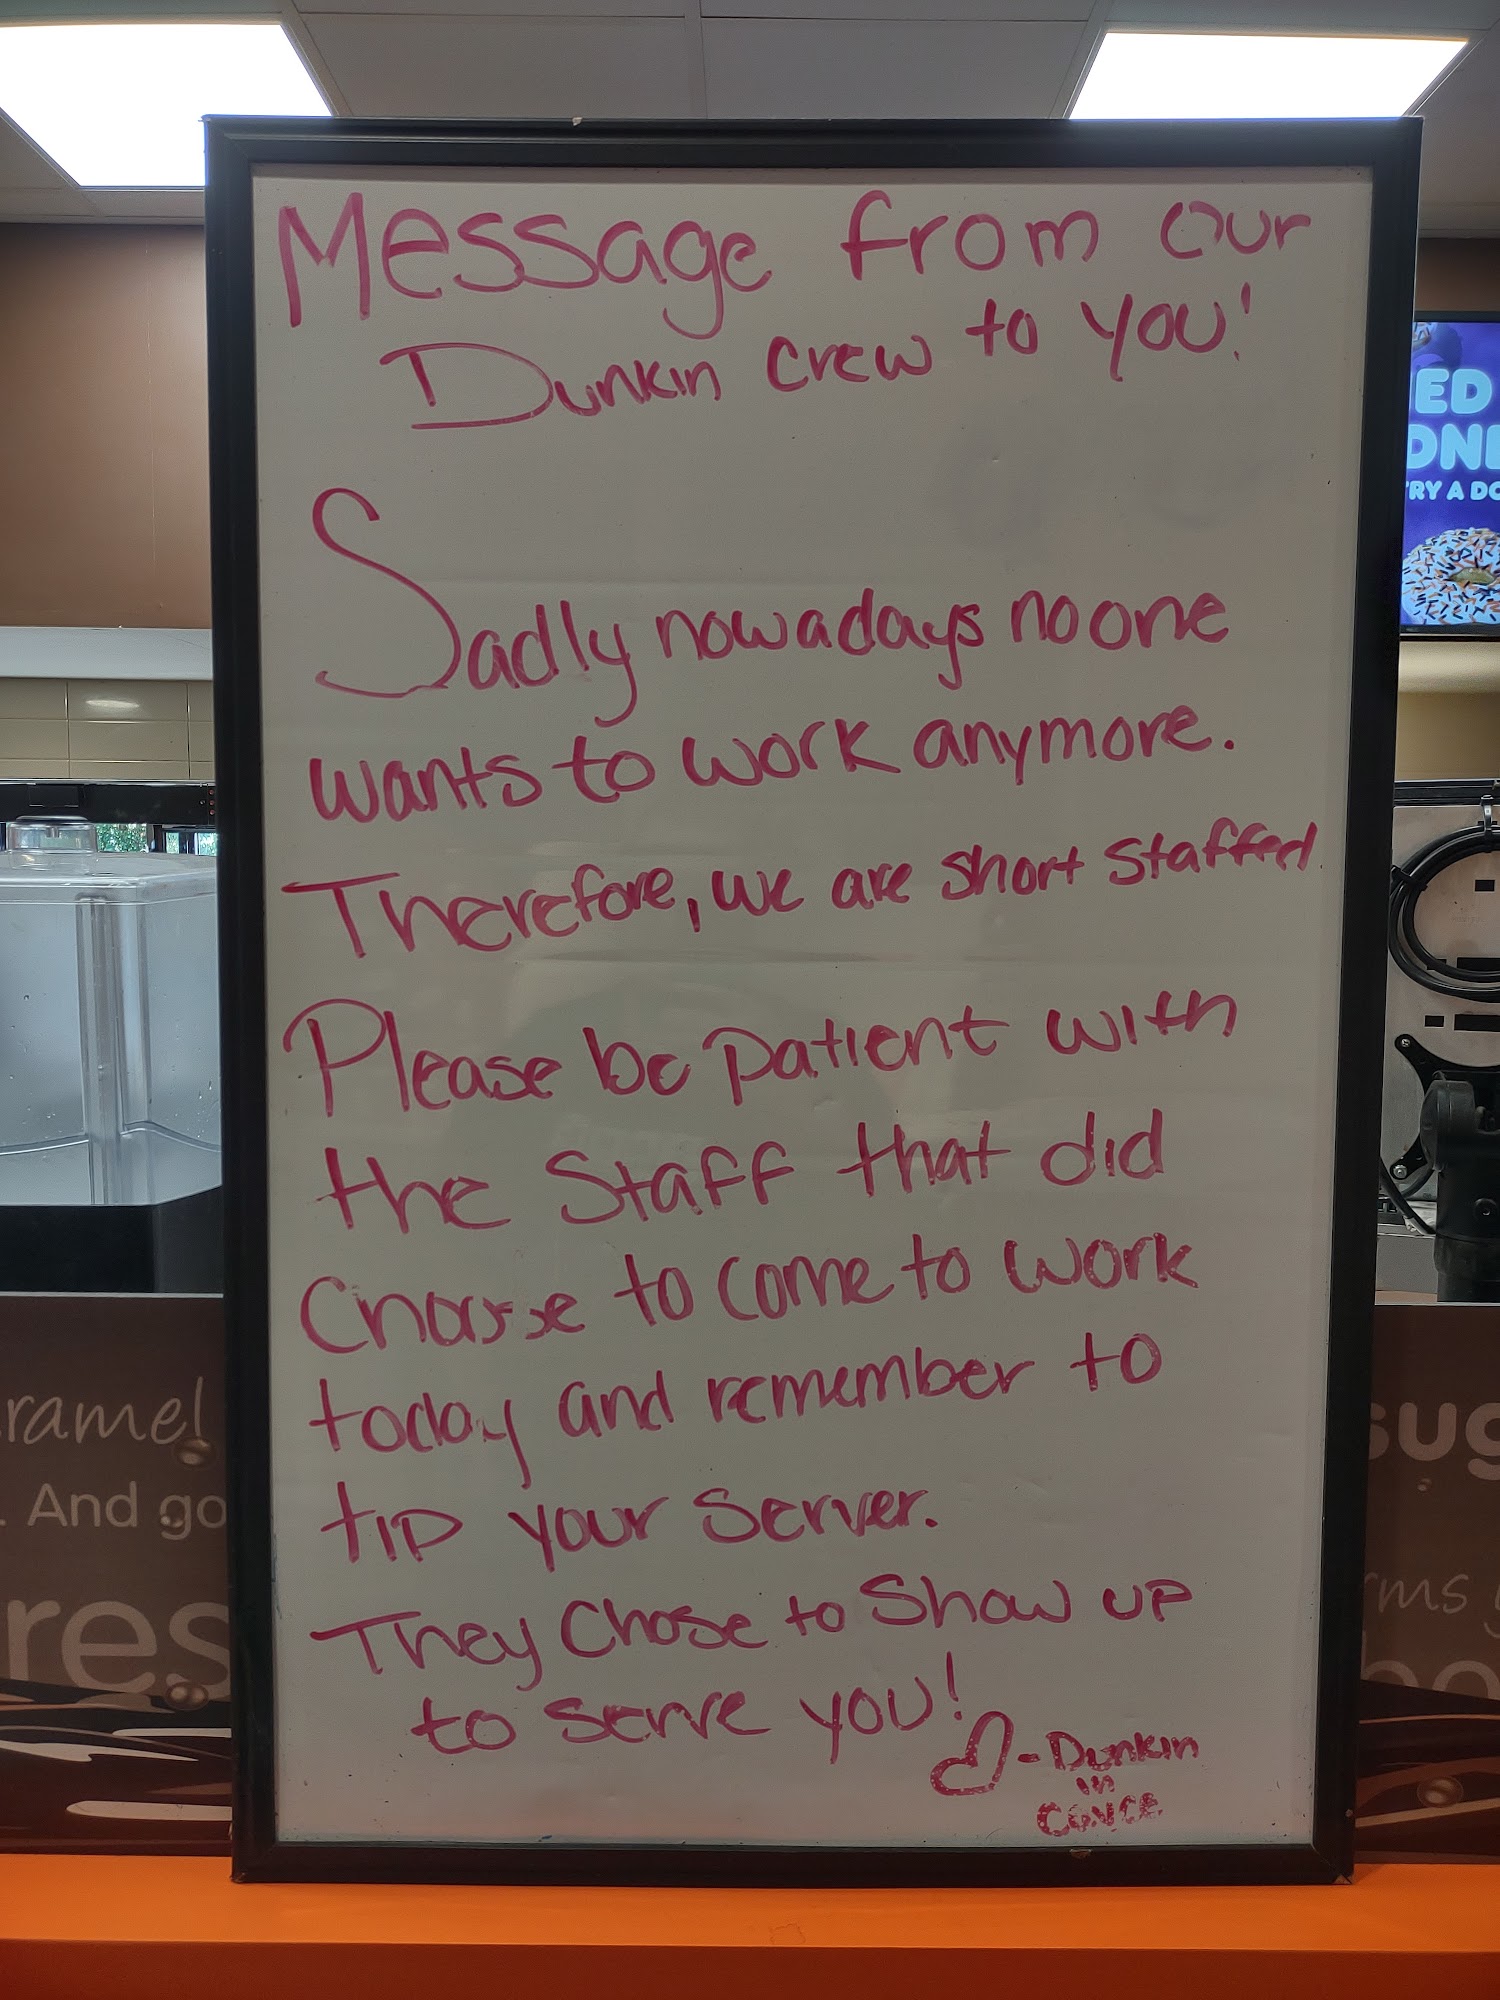 Message from our
Dunkin crew to you!
Sadly nowadays no one
wants to work anymore.
Therefore, we are short staffed.
Please be patient with
the staff that did
choose to come to work
today and remember to
tip your server.
They chose to show up
to serve you!
- Dunkin
in
ED
DN
TRY A DO
ramel
. And go
res
sug
rms